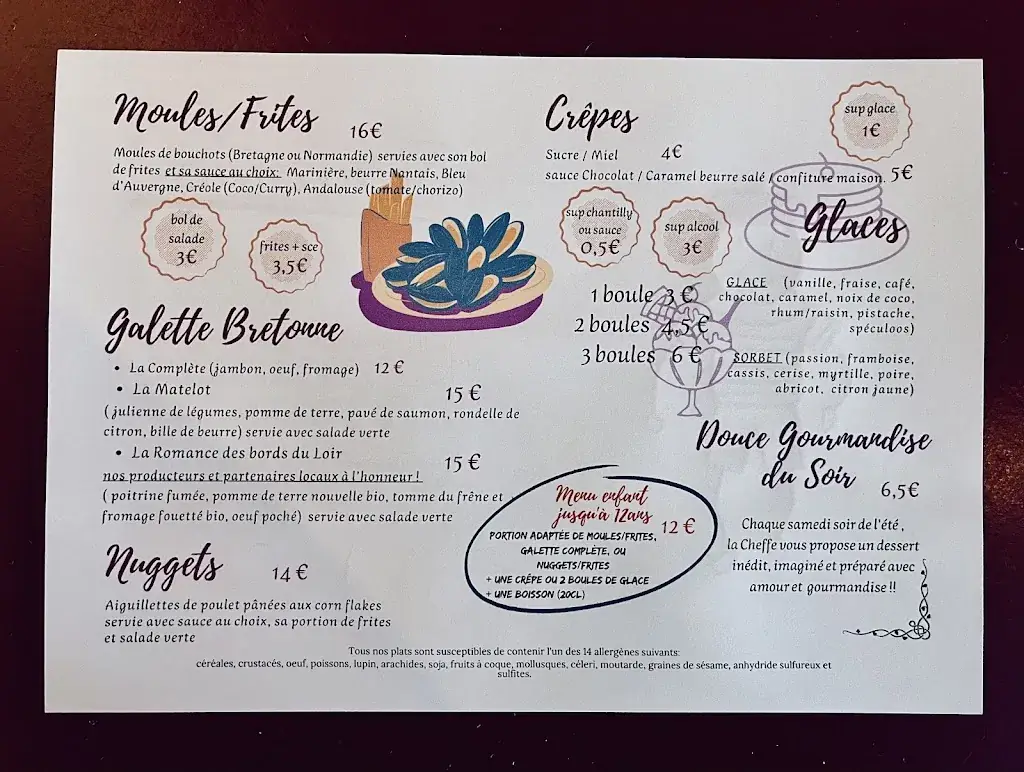 Moules/Frites 16€
Moules de bouchots (Bretagne ou Normandie) servies avec son bol
de frites et sa sauce au choix: Marinière, beurre Nantais, Bleu
d'Auvergne, Créole (Coco/Curry), Andalouse (tomate/chorizo)
bol de
salade
3€
frites + sce
3,5€
Galette Bretonne
• La Complète (jambon, oeuf, fromage) 12 €
• La Matelot 15 €
( julienne de légumes, pomme de terre, pavé de saumon, rondelle de
citron, bille de beurre) servie avec salade verte
• La Romance des bords du Loir 15 €
nos producteurs et partenaires locaux à l'honneur !
( poitrine fumée, pomme de terre nouvelle bio, tomme du frêne et
fromage fouetté bio, oeuf poché) servie avec salade verte
Nuggets 14 €
Aiguillettes de poulet pânées aux corn flakes
servie avec sauce au choix, sa portion de frites
et salade verte
Crêpes
sup glace
1€
Sucre / Miel 4€
sauce Chocolat / Caramel beurre salé / confiture maison. 5€
sup chantilly
ou sauce
0,5€
sup alcool
3€
Glaces
1 boule 3 €
2 boules 4,5 €
3 boules 6 €
GLACE (vanille, fraise, café,
chocolat, caramel, noix de coco,
rhum/raisin, pistache,
spéculoos)
SORBET (passion, framboise,
cassis, cerise, myrtille, poire,
abricot, citron jaune)
Menu enfant
jusqu'à 12ans 12 €
PORTION ADAPTÉE DE MOULES/FRITES,
GALETTE COMPLÈTE, OU
NUGGETS/FRITES
+ UNE CRÊPE OU 2 BOULES DE GLACE
+ UNE BOISSON (20CL)
Douce Gourmandise
du Soir 6,5€
Chaque samedi soir de l'été ,
la Cheffe vous propose un dessert
inédit, imaginé et préparé avec
amour et gourmandise !!
Tous nos plats sont susceptibles de contenir l'un des 14 allergènes suivants:
céréales, crustacés, oeuf, poissons, lupin, arachides, soja, fruits à coque, mollusques, céleri, moutarde, graines de sésame, anhydride sulfureux et
sulfites.